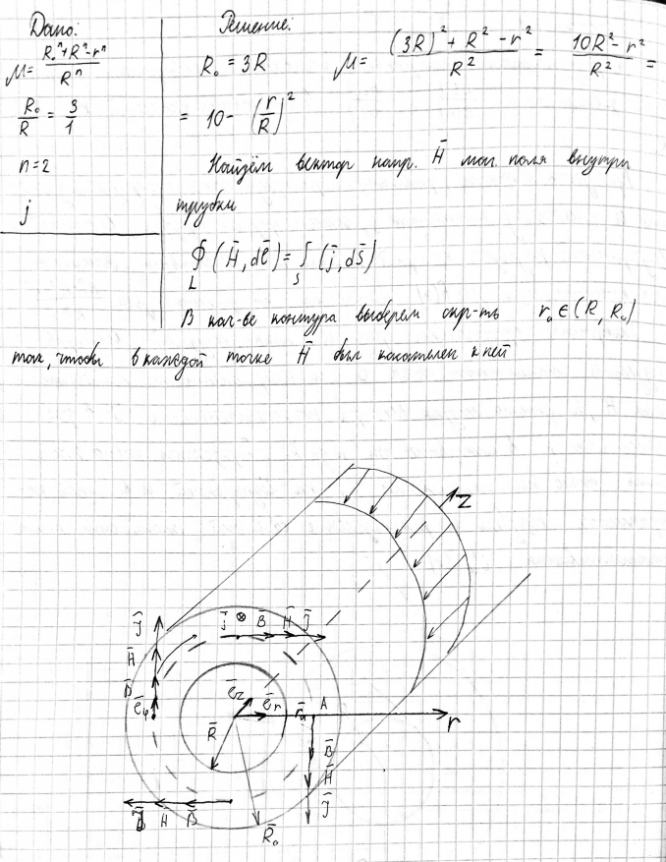 Дано:
μ = (R₀ⁿ + Rⁿ - rⁿ) / Rⁿ
R₀ / R = 3 / 1
n = 2
j
Решение:
R₀ = 3R μ = ((3R)² + R² - r²) / R² = (10R² - r²) / R² =
= 10 - (r/R)²
Найдём вектор напр. H̄ маг. поля внутри
трубки
∮_L (H̄, dℓ̄) = ∫_S (j̄, ds̄)
В кач-ве контура выберем окр-ть rₐ ∈ (R, R₀)
так, чтобы в каждой точке H̄ был касателен к ней
Z
J̄ j̄ ⊗ B̄ H̄ J̄
H̄
B̄
ē_φ ē_z ē_r r̄ₐ A r
R̄ B̄
H̄
J̄
H̄ B̄
R̄₀